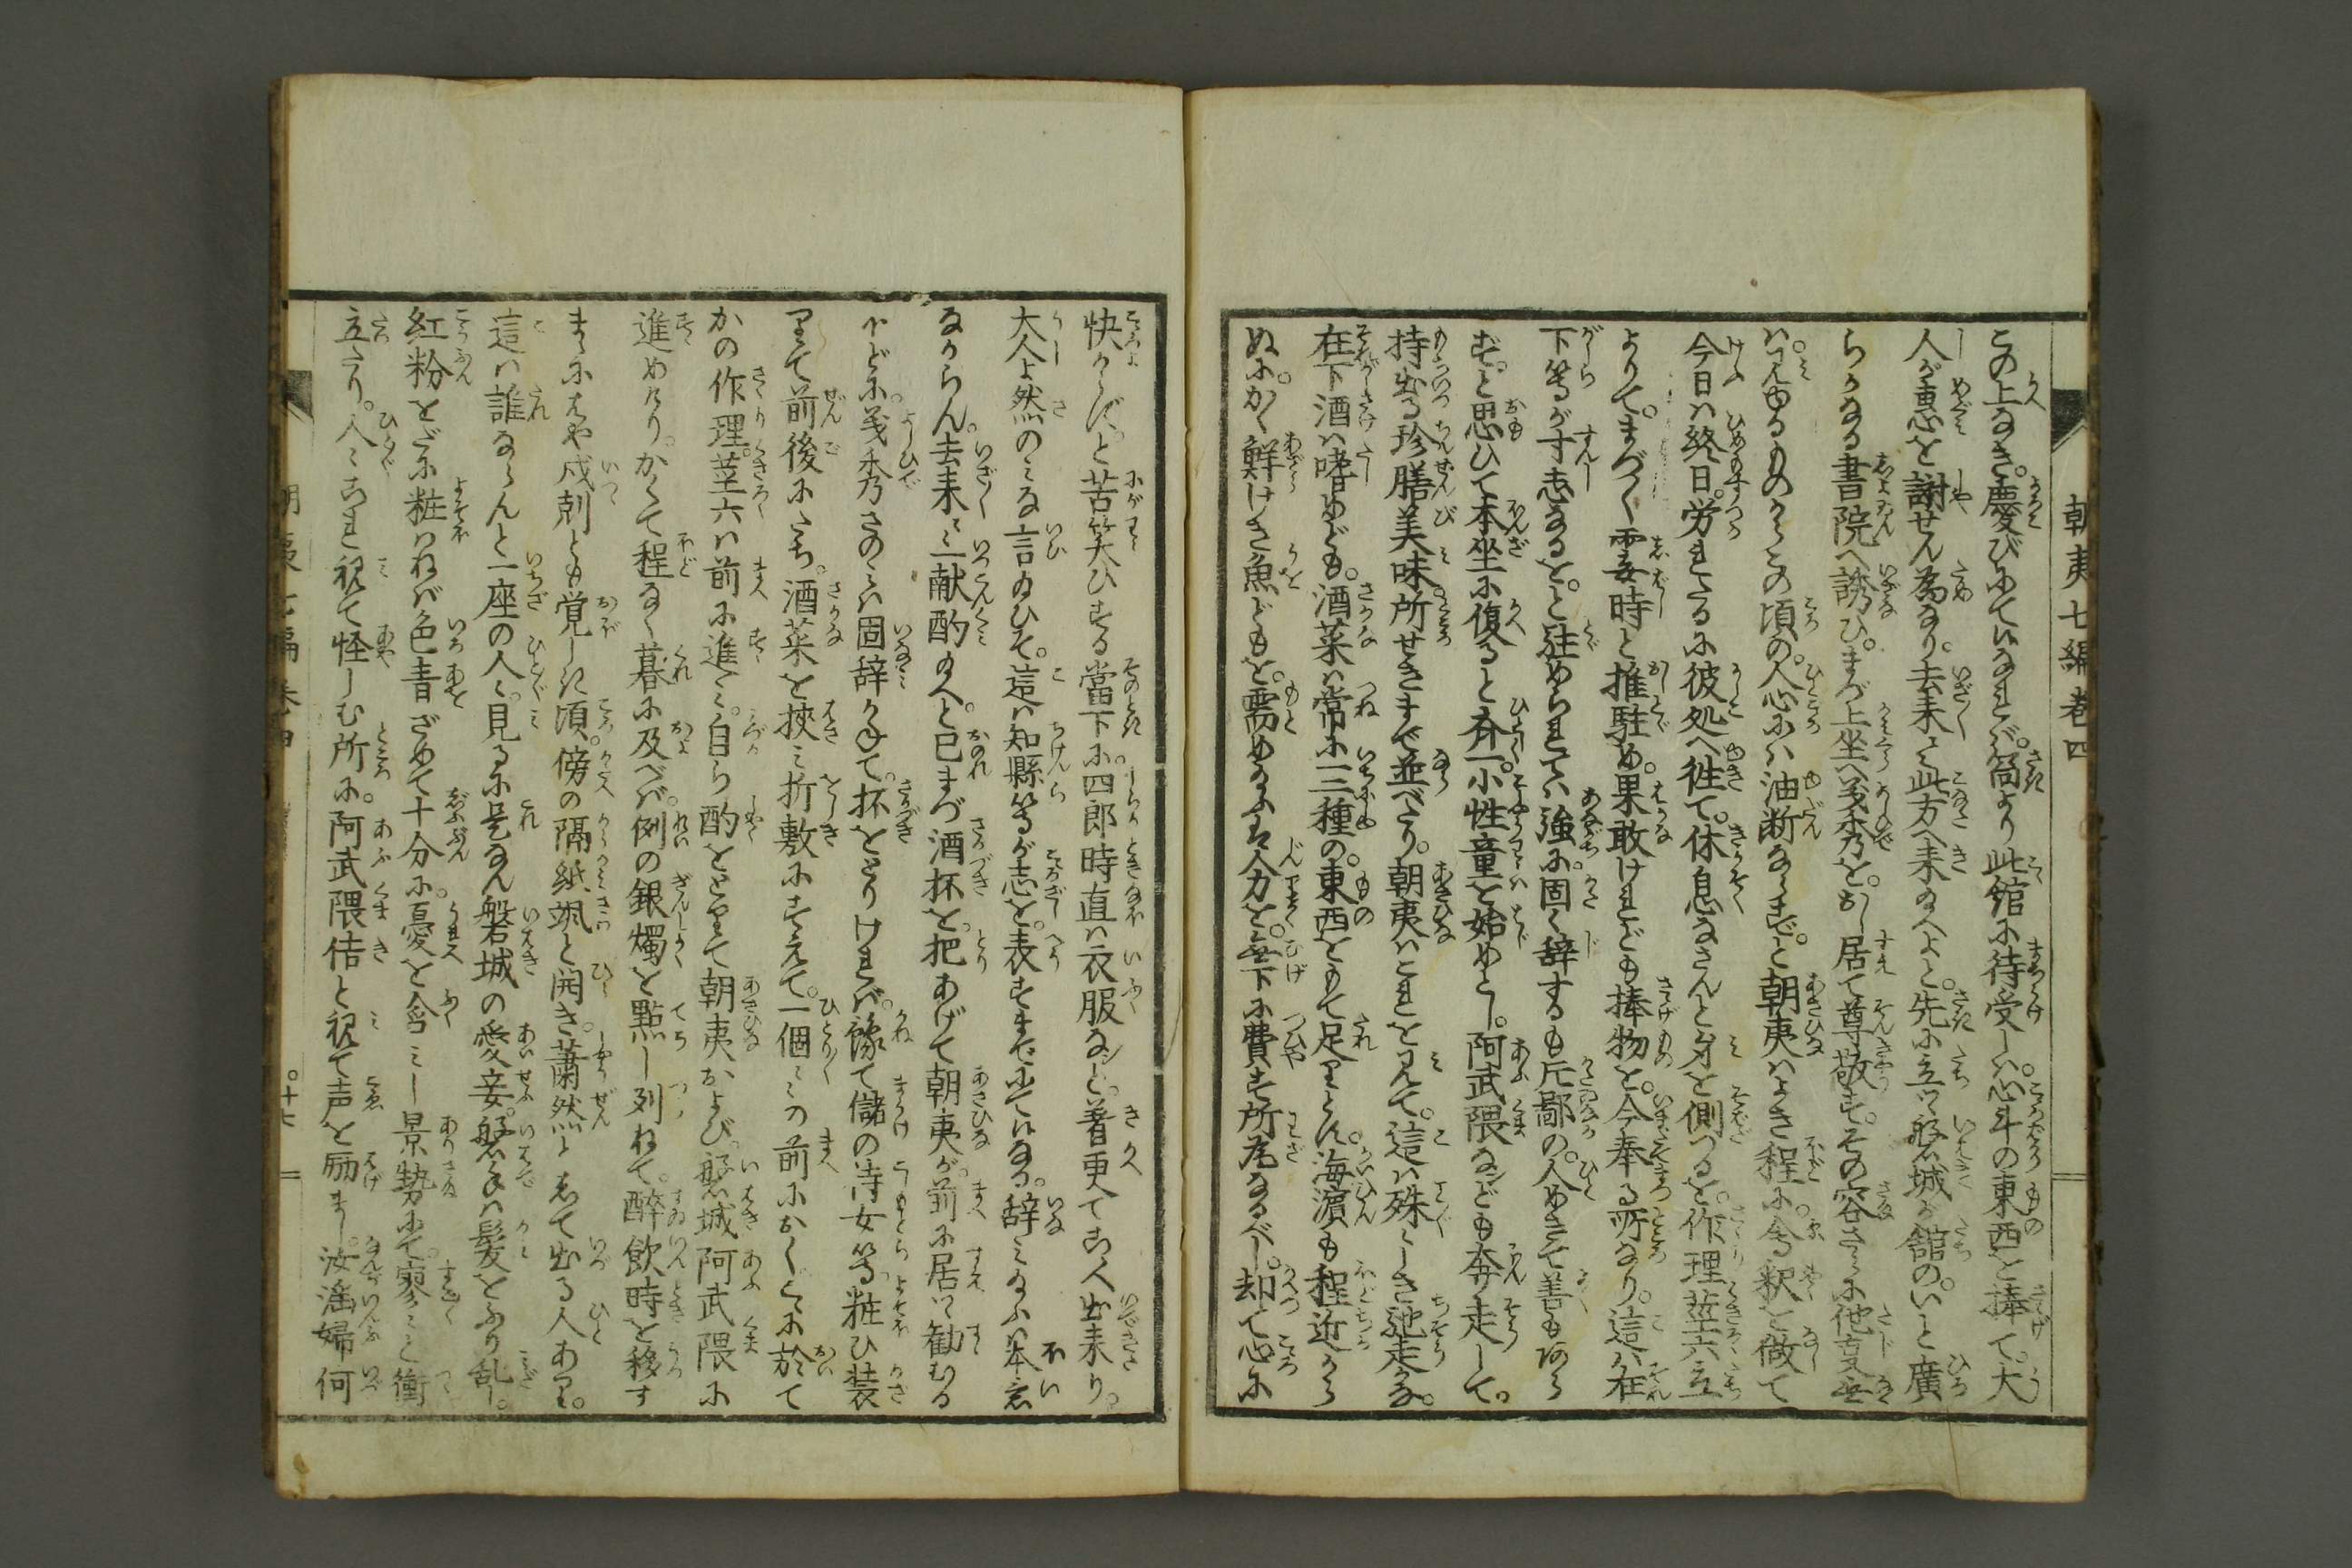 朝夷七編巻四
この上なき。慶びにていなれば。筒より此館に待受しハ。心斗の東西を捧て。大
人が恵を謝せん為なり。去来〻此方へ来ませへよと。先に立て磐城が舘の。いと廣
らかなる書院へ誘ひ。まづ上坐へ義秀を。おし居て尊敬す。その容さらに他事無
ハ。見ゆるものからこの頃の。人心にハ油断ならずと。朝夷ハよき程に。会釈を做て
今日ハ終日。労れたるに彼処へ徃て。休息なさんと身を側つるを。作理莖六立
よりて。まづ〳〵霎時と推駐め。果敢けれども捧物を。今奉る所なり。這ハ在
下等が寸志なるを。と駐められてハ強に。固く辞するも片鄙の。人めきて善も阿ら
ず。と思ひて本坐に復ると斉一。小性童を始めとし。阿武隈なども奔走して。
持出る珍膳美味。所せきまで並べたり。朝夷ハこれを見て。這ハ殊〻しき馳走かな。
在下酒ハ嗜めども。酒菜ハ常に一三種の。東西をもて足りとす。海濱も程近から
ぬに。かく鮮けき魚どもを。需めたまふハ人力を。無下に費す所為なるべし。却て心に
快からず。と苦笑ひする當下に。四郎時直ハ衣服など。著更てこゝへ出来り。
大人よ然のミな言ひたまひそ。這ハ知縣等が志を。表すまでにていなる。辞ミたまふハ本意
なからん。去来〻〻一献酌たまへ。と己まづ酒杯を。把あげて朝夷が。前に居て勧むる
ほどに。義秀さのミハ固辞かねて。杯をとりければ。豫て儲の侍女等。粧ひ装
りて前後にたち。酒菜を挾ミ折敷にすえて。一個〻〻の前におく。こゝに於て
かの作理。莖六ハ前に進ミ。自ら酌をとりて朝夷、および。磐城阿武隈に
進めけり。かくて程なく暮に及べバ。例の銀燭を點し列ねて。醉飲時を移す
まゝにはや戌剋とも覚しき頃。傍の隔紙、颯と開き。蕭然として出る人あり。
這ハ誰ならんと一座の人〻。見るに是なん磐城の愛妾。磐手ハ髪をふり乱し。
紅粉をだに粧ハねバ色青ざめて十分に。憂を含ミし景勢にて。寥〻と衝
立たり。人〻これ視て怪しむ所に。阿武隈佶と視て声を励まし。汝淫婦何
朝夷七編巻四
〇十七